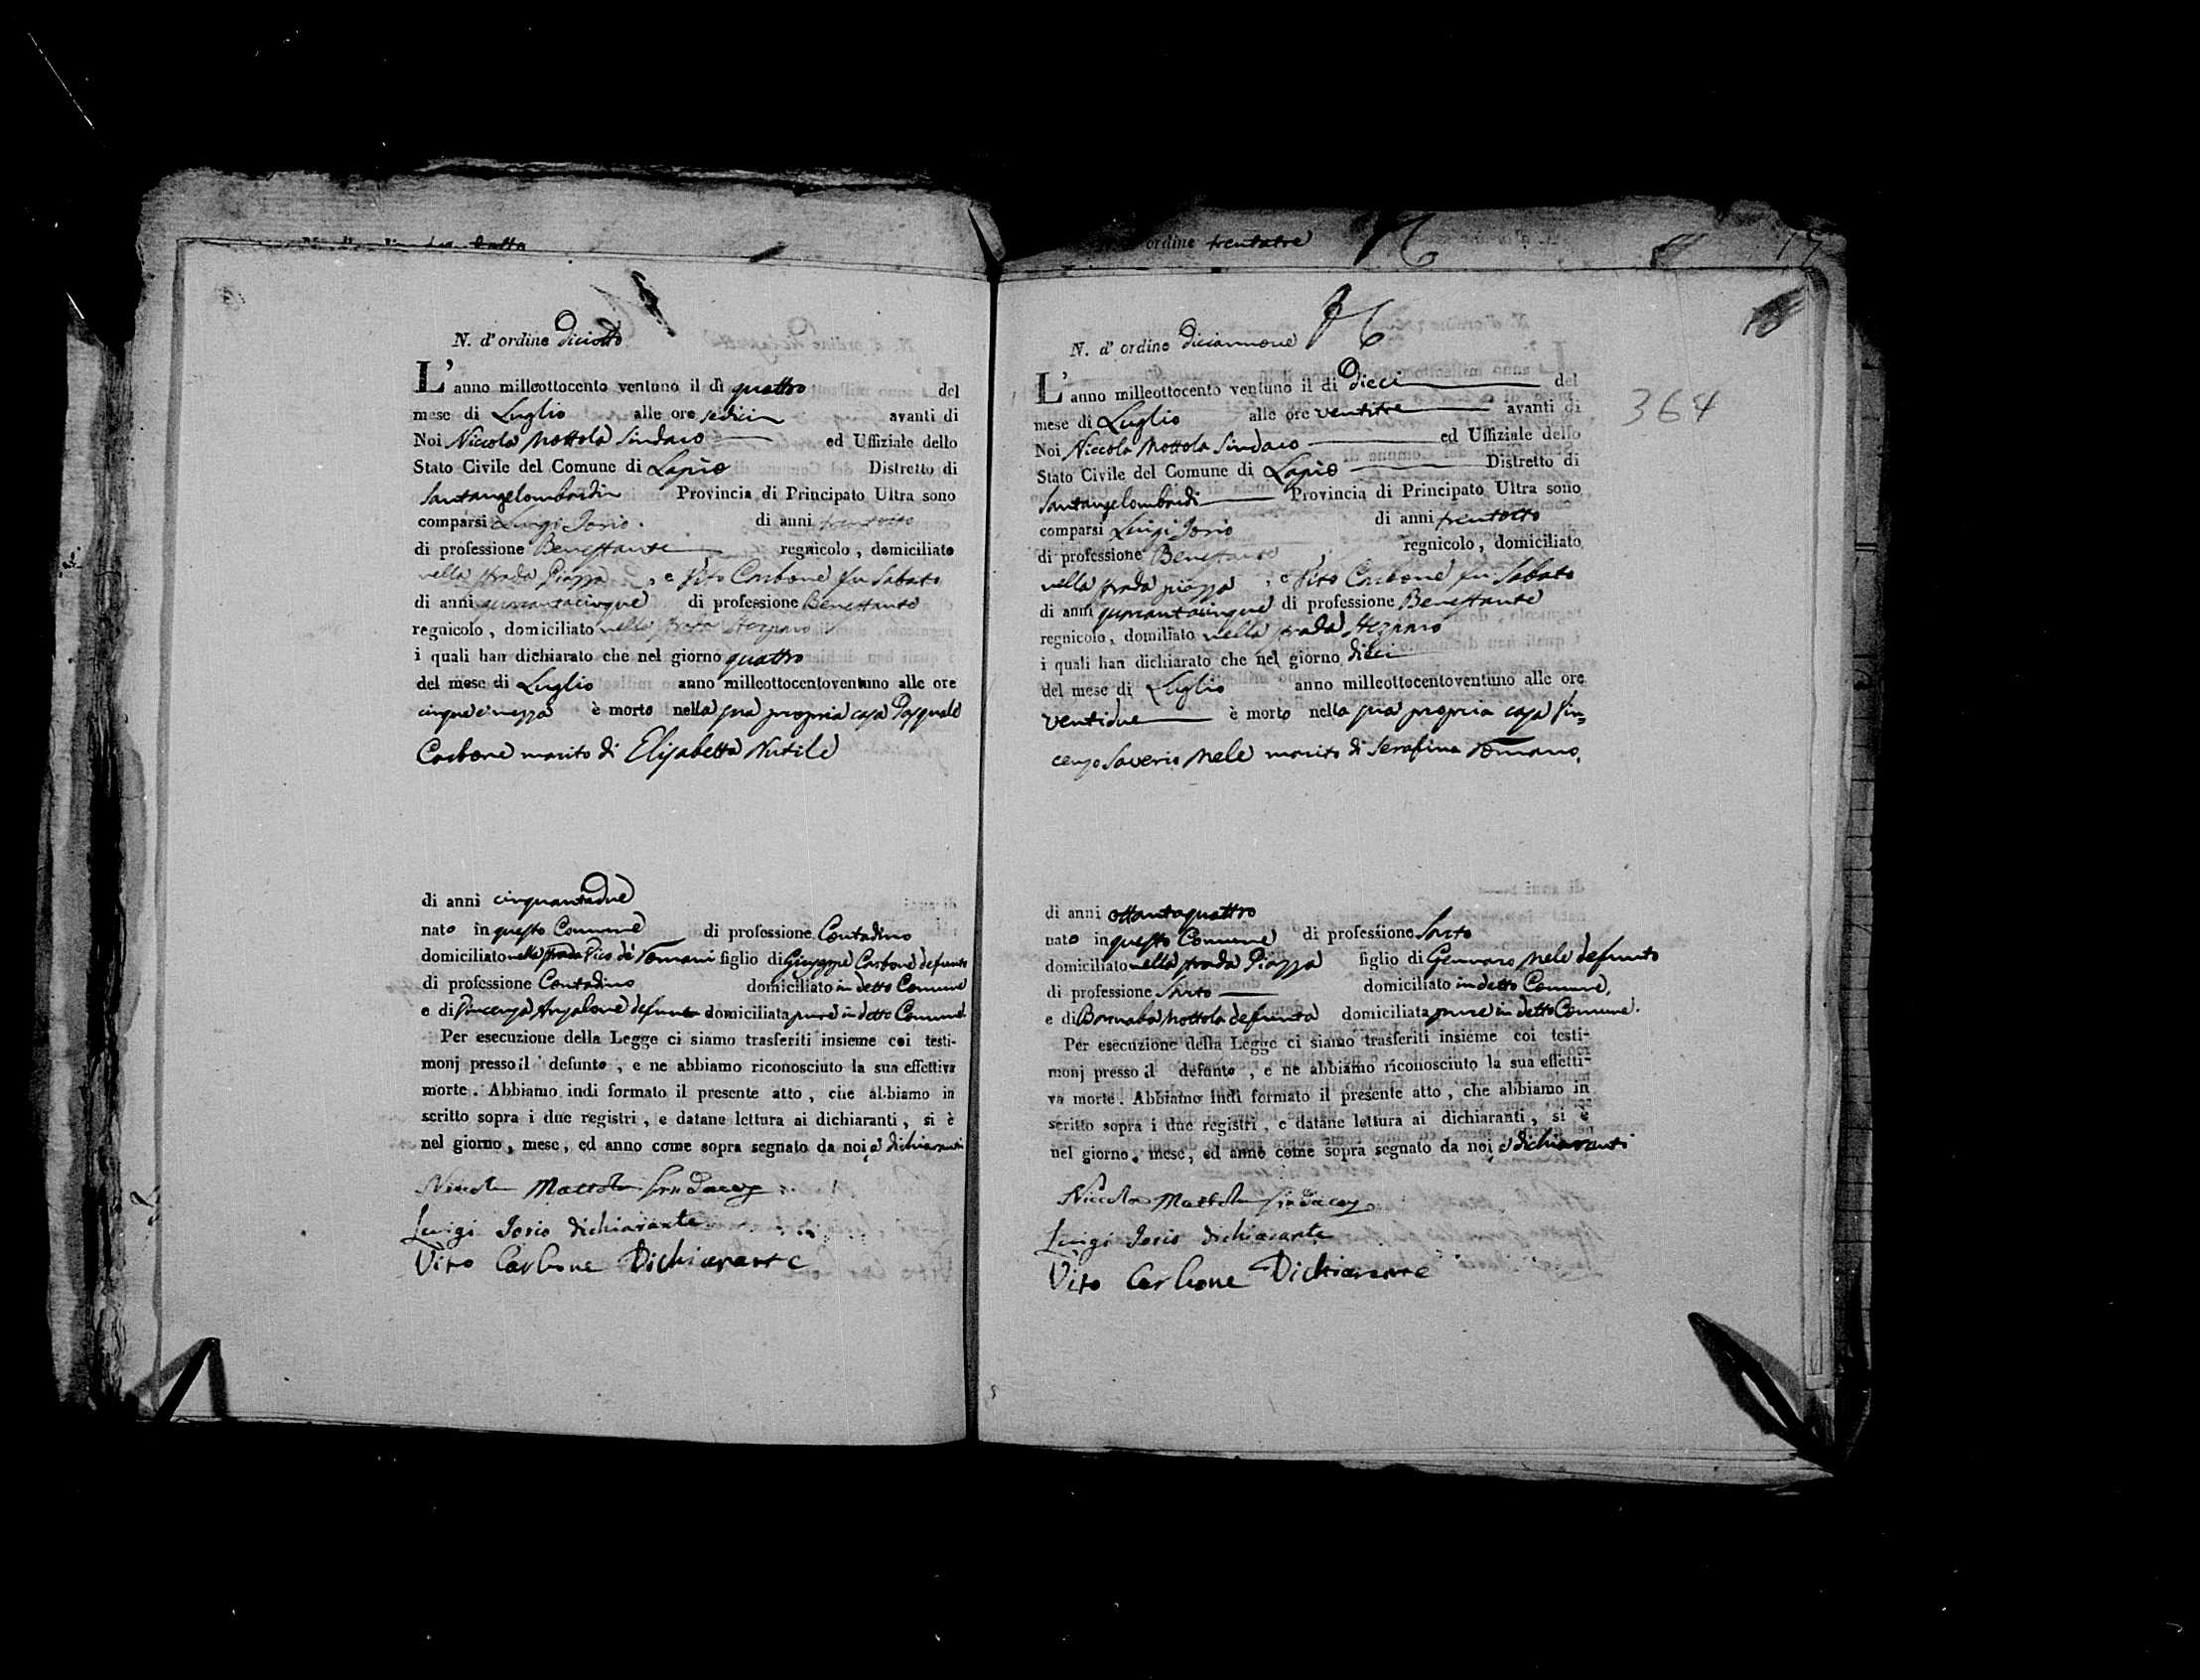 N. d'ordine Diciotto
L'anno milleottocento ventuno il dì quattro del
mese di Luglio alle ore sedici avanti di
Noi Niccola Mottola Sindaco ed Uffiziale dello
Stato Civile del Comune di Lapio Distretto di
Santangelombardi Provincia di Principato Ultra sono
comparsi Luigi Iorio. di anni trentotto
di professione Benestante regnicolo, domiciliato
nella strada Piazza, e Vito Carbone fu Sabato
di anni quarantacinque di professione Benestante
regnicolo, domiciliato nella strada
i quali han dichiarato che nel giorno quattro
del mese di Luglio anno milleottocentoventuno alle ore
cinque e mezza è morto nella sua propria casa Pasquale
Carbone marito di Elisabetta Nutile
di anni cinquantadue
nato in questo Comune di professione Contadino
domiciliato nella strada Vico de' Romani figlio di Giuseppe Carbone defunto
di professione Contadino domiciliato in detto Comune
e di Vincenza Anzalone defunta domiciliata pure in detto Comune.
Per esecuzione della Legge ci siamo trasferiti insieme coi testi-
monj presso il defunto, e ne abbiamo riconosciuto la sua effettiva
morte. Abbiamo indi formato il presente atto, che abbiamo in
scritto sopra i due registri, e datane lettura ai dichiaranti, si è
nel giorno, mese, ed anno come sopra segnato da noi, e dichiaranti
Niccola Mottola Sindaco
Luigi Iorio dichiarante
Vito Carbone Dichiarante
ordine trentatre
17
18
364
N. d'ordine diciannove
L'anno milleottocento ventuno il di Dieci del
mese di Luglio alle ore ventitre avanti di
Noi Niccola Mottola Sindaco ed Uffiziale dello
Stato Civile del Comune di Lapio Distretto di
Santangelombardi Provincia di Principato Ultra sono
comparsi Luigi Iorio di anni trentotto
di professione Benestante regnicolo, domiciliato
nella strada piazza, e Vito Carbone fu Sabato
di anni quarantacinque di professione Benestante
regnicolo, domiliato nella strada
i quali han dichiarato che nel giorno dieci
del mese di Luglio anno milleottocentoventuno alle ore
ventidue è morto nella sua propria casa Vin=
cenzo Saverio Mele marito di Serafina Romano.
di anni ottantaquattro
nato in questo Comune di professione Sarto
domiciliato nella strada Piazza figlio di Gennaro Mele defunto
di professione Sarto domiciliato in detto Comune,
e di Barnaba Mottola defunta domiciliata pure in detto Comune.
Per esecuzione della Legge ci siamo trasferiti insieme coi testi-
monj presso il defunto, e ne abbiamo riconosciuto la sua effetti-
va morte. Abbiamo indi formato il presente atto, che abbiamo in
scritto sopra i due registri, e datane lettura ai dichiaranti, si è
nel giorno, mese, ed anno come sopra segnato da noi, e dichiaranti
Niccola Mottola Sindaco
Luigi Iorio dichiarante
Vito Carbone Dichiarante